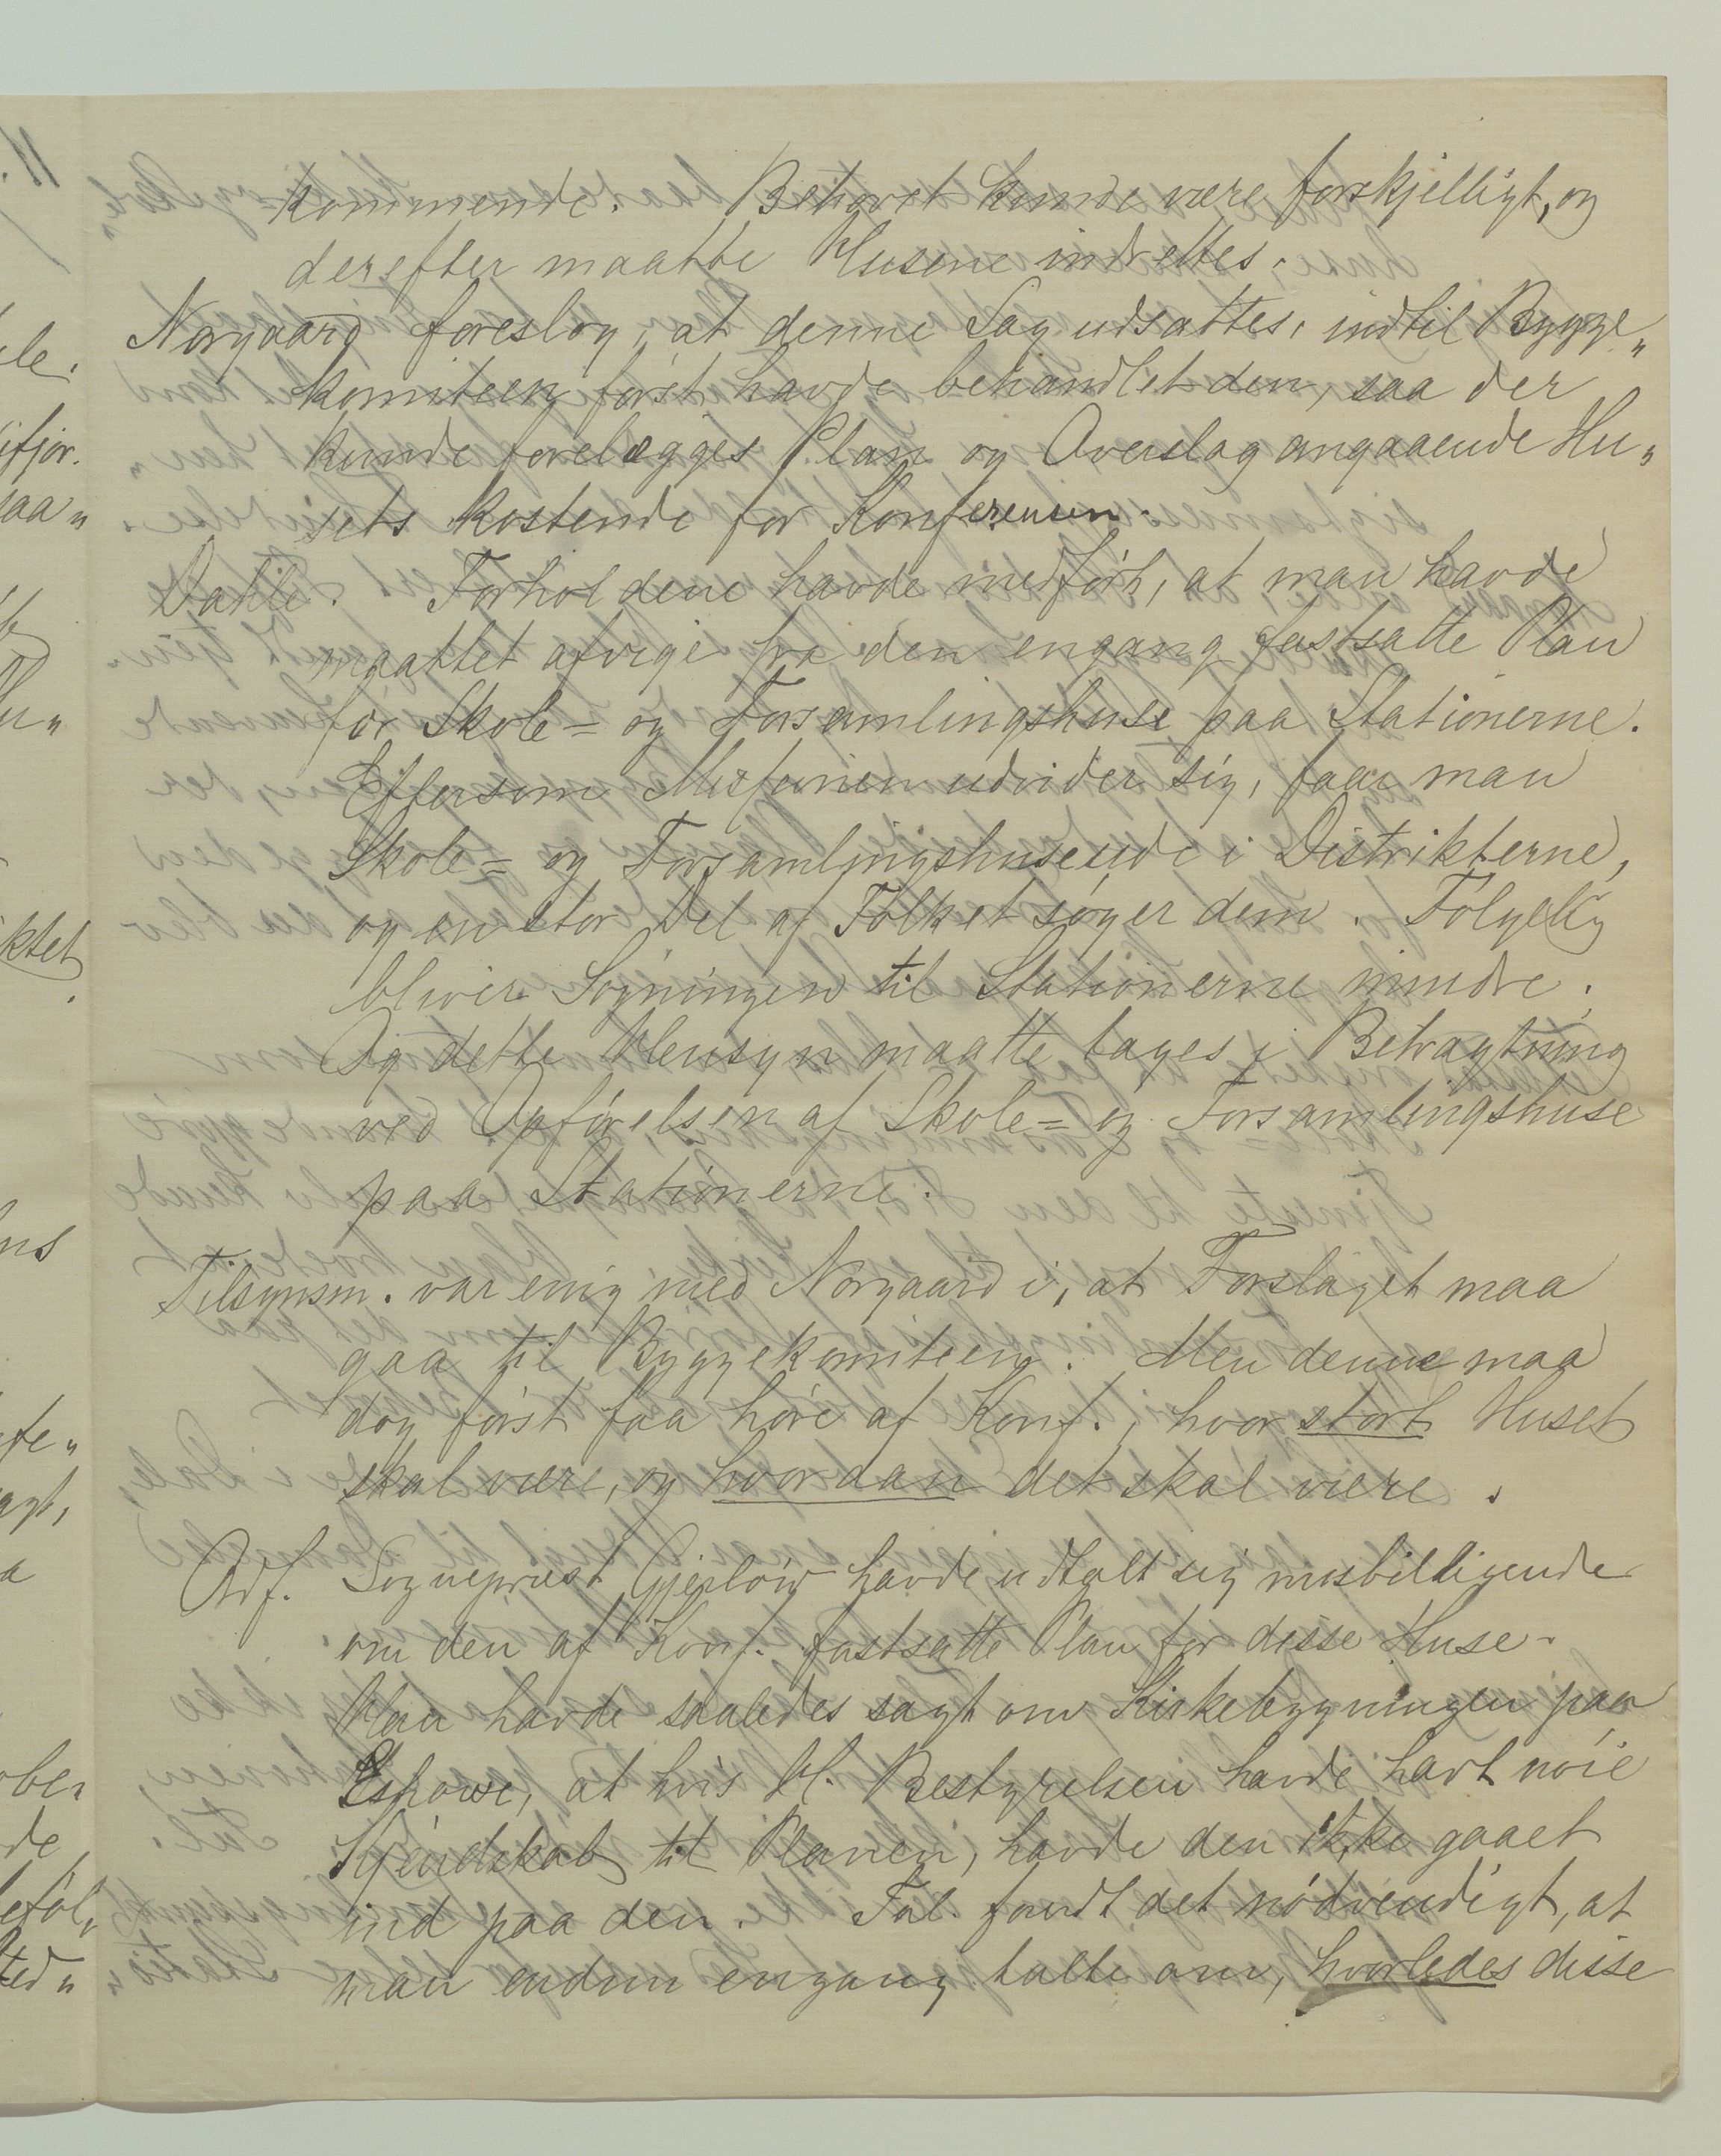 kommende. Behovet kunde være forskjelligt, og
derefter maatte Husene indrettes.
Norgaard foreslog, at denne Sag udsattes, indtil Bygge„
komiteen først havde behandlet den, saa der
kunde forelægges Plan og Overslag angaaende Hu„
sets Kostende for Konferensen.
Dahle. Forholdene havde medført, at man havde
maattet afvige fra den engang fastsatte Plan
for Skole= og Forsamlingshuse paa Stationerne.
Eftersom Missionen udvider sig, faar man
Skole= og Forsamlingshuse ude i Distrikterne,
og en stor Del af Folket søger dem. Følgelig
bliver Søgningen til Stationerne mindre.
Og dette Hensyn maatte tages i Betragtning
ved Opførelsen af Skole= og Forsamlingshuse
paa Stationerne.
Tilsynsm. var enig med Norgaard i, at Forslaget maa
gaa til Byggekomiteen. Men denne maa
dog først faa høre af Konf., hvor stort Huset
skal være, og hvordan det skal være.
Odf. Sogneprest Gjerløw havde udtalt sig misbilligende
om den af Konf. fastsatte Plan for disse Huse.
Han havde saaledes sagt om Kirkebygningen paa
Eshowe, at hvis H. Bestyrelsen havde havt nøie
Kjendskab til Planen, havde den ikke gaaet
ind paa den. Tal. fandt det nødvendigt, at
man endnu engang talte om, hvorledes disse